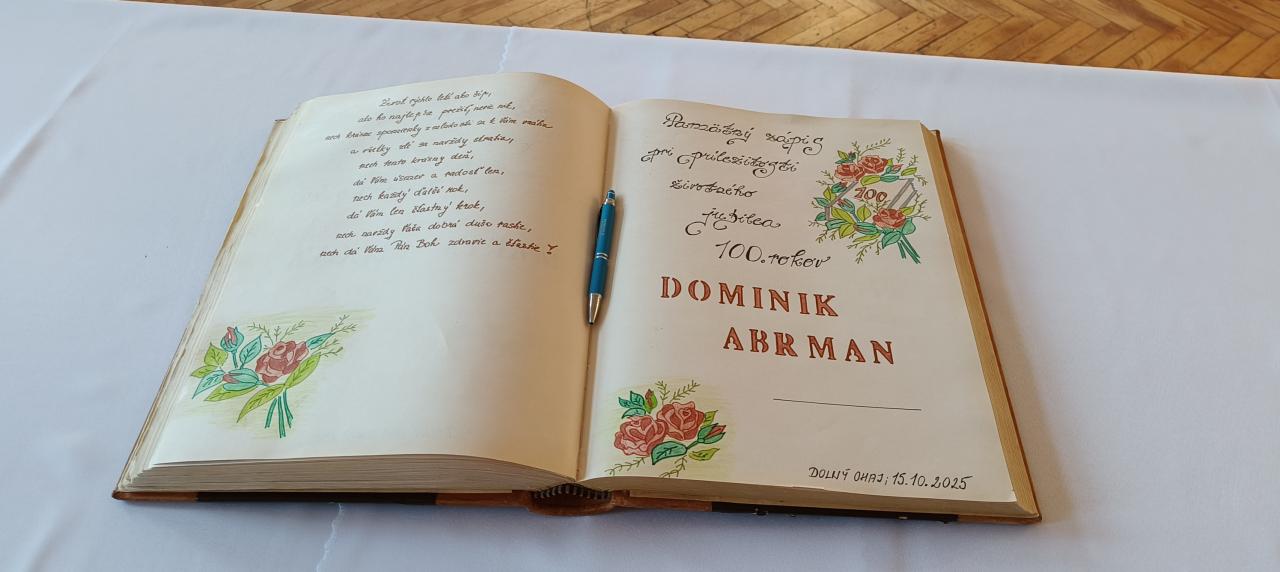 Život rýchlo letí ako šíp,
ako ho najlepšie prežiť, nevie nik,
nech krásne spomienky z mladosti sa k Vám vrátia
a všetky zlé sa navždy stratia,
nech tento krásny deň,
dá Vám úsmev a radosť len,
nech každý ďalší rok,
dá Vám len šťastný krok,
nech navždy Vaša dobrá duša rastie,
nech dá Vám Pán Boh zdravie a šťastie!
Pamätný zápis
pri príležitosti
životného
jubilea
100. rokov
100
DOMINIK
ABRMAN
DOLNÝ OHAJ, 15.10.2025